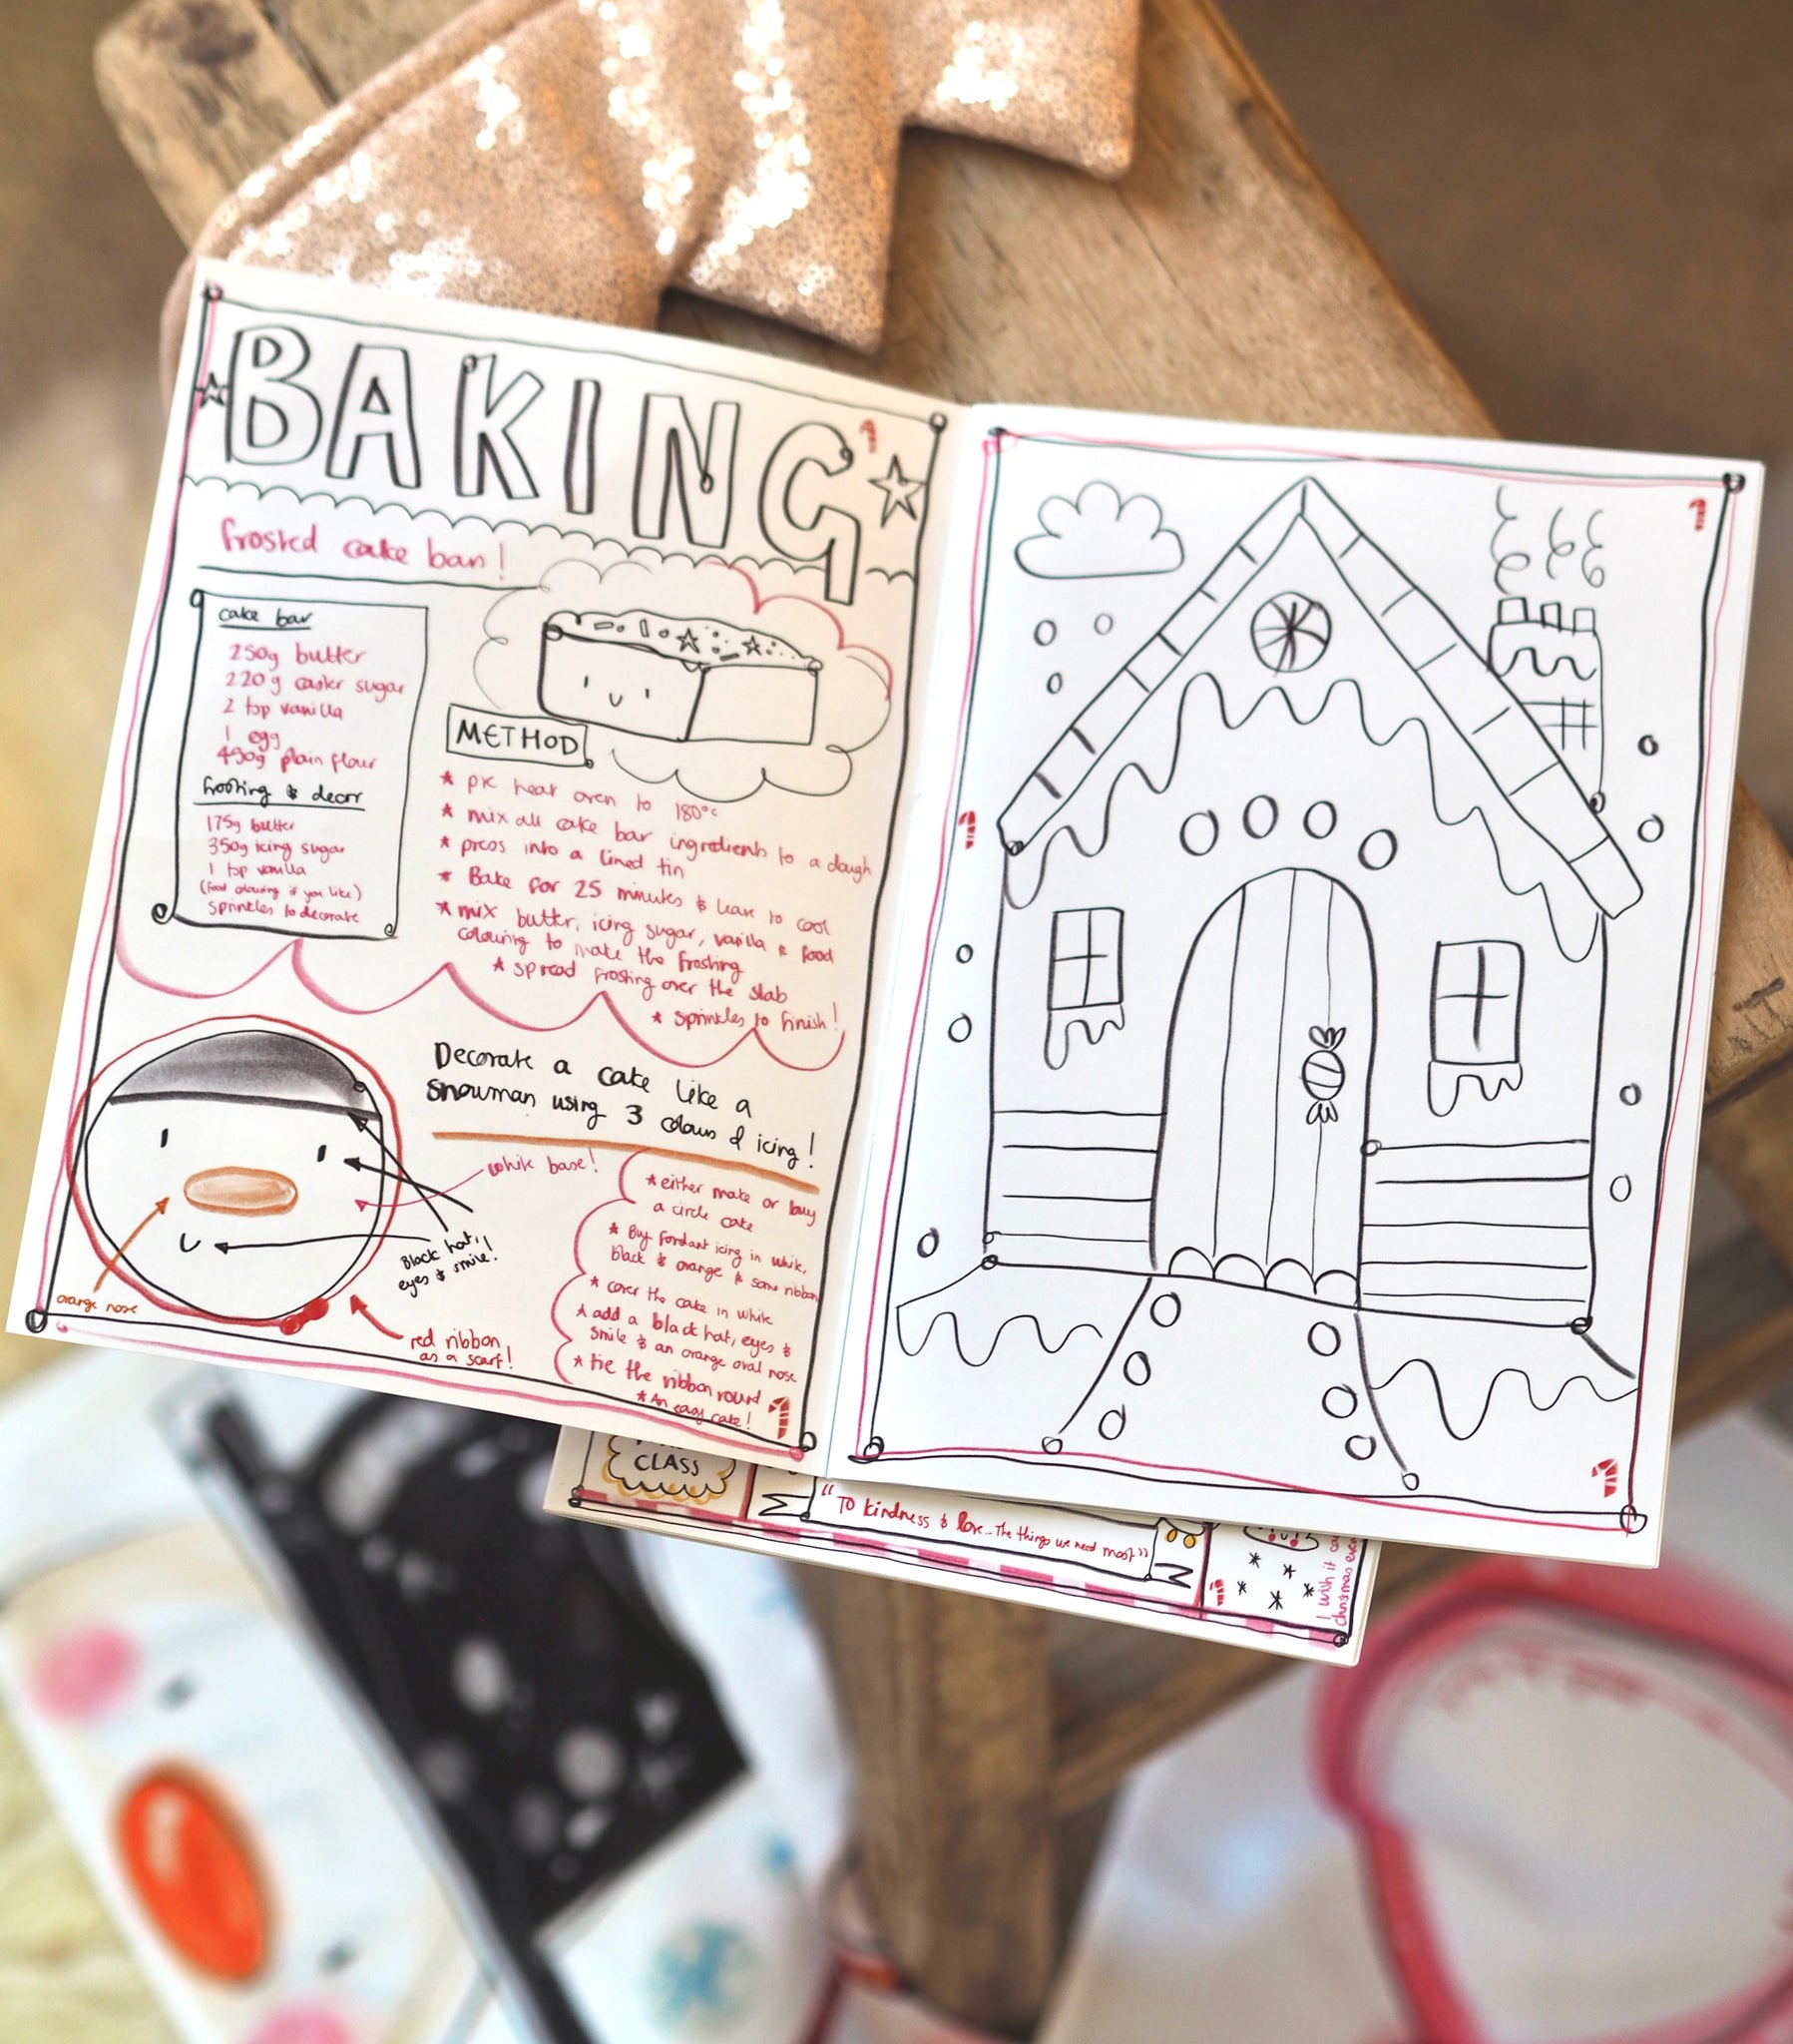 BAKING
frosted cake bars!
cake bar
250g butter
220g caster sugar
2 tsp vanilla
1 egg
450g plain flour
frosting & decor
175g butter
350g icing sugar
1 tsp vanilla
(food colouring if you like)
sprinkles to decorate
METHOD
* pre heat oven to 180°c
* mix all cake bar ingredients to a dough
* press into a lined tin
* Bake for 25 minutes & leave to cool
* mix butter, icing sugar, vanilla & food
colouring to make the frosting
* spread frosting over the slab
* sprinkles to finish!
Decorate a cake like a
snowman using 3 colours of icing!
white base!
Black hat,
eyes & smile!
orange nose
red ribbon
as a scarf!
* either make or buy
a circle cake
* Buy fondant icing in white,
black & orange & some ribbon
* cover the cake in white
* add a black hat, eyes &
smile & an orange oval nose
* tie the ribbon round
* An easy cake!
CLASS
"To kindness & love... The things we need most"
I wish it
christmas